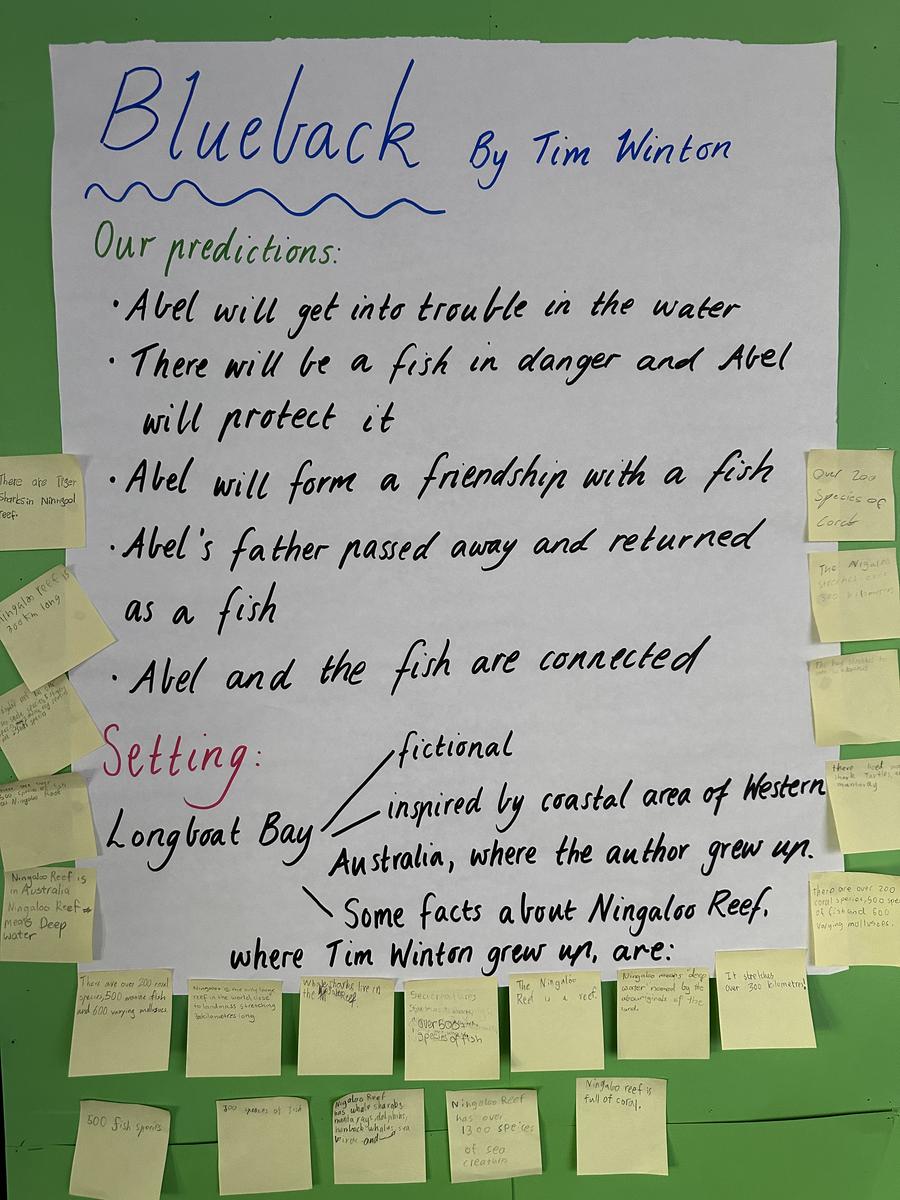 Blueback By Tim Winton
Our predictions:
· Abel will get into trouble in the water
· There will be a fish in danger and Abel
will protect it
· Abel will form a friendship with a fish
· Abel's father passed away and returned
as a fish
· Abel and the fish are connected
Setting:
Longboat Bay
fictional
inspired by coastal area of Western
Australia, where the author grew up.
Some facts about Ningaloo Reef,
where Tim Winton grew up, are:
There are Tiger
Sharks in Ninngool
reef.
Ningaloo reef is
300km long
Ningaloo Reef
Ningaloo Reef is
in Australia
Ningaloo Reef
means Deep
water
Over 200
Species of
Coral
The Nigaloo
300 kilometres
there
shark Turtles
mantaray
there are over 200
coral species, 500
of fish and 600
varying molluscs.
There are over 200 coral
species, 500 marine fish
and 600 varying molluscs.
Ningaloo is the only large
reef in the world close
to landmass stretching
kilometres long
Whale sharks live in
the
over 500
species of fish
The Ningaloo
Reef is a reef.
Ningaloo means deep
water named by the
aboriginals of the
land.
It stretches
over 300 kilometres!
500 fish species
500 species of fish
Ningaloo Reef
has whale sharks,
manta rays, dolphins,
humback whales, sea
birds and
Ningaloo Reef
has over
1300 speises
of sea
creatures
Ningaloo reef is
full of coral.